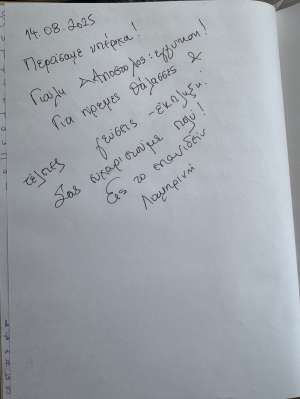 14.08.2025
Περάσαμε υπέροχα!
Γιάλη & Απόστολος: εγγύηση!
Για ήρεμες θάλασσες &
τέλειες γεύσεις - έκπληξη.
Σας ευχαριστούμε πολύ!
Εις το επανιδείν
Λαμπρινή